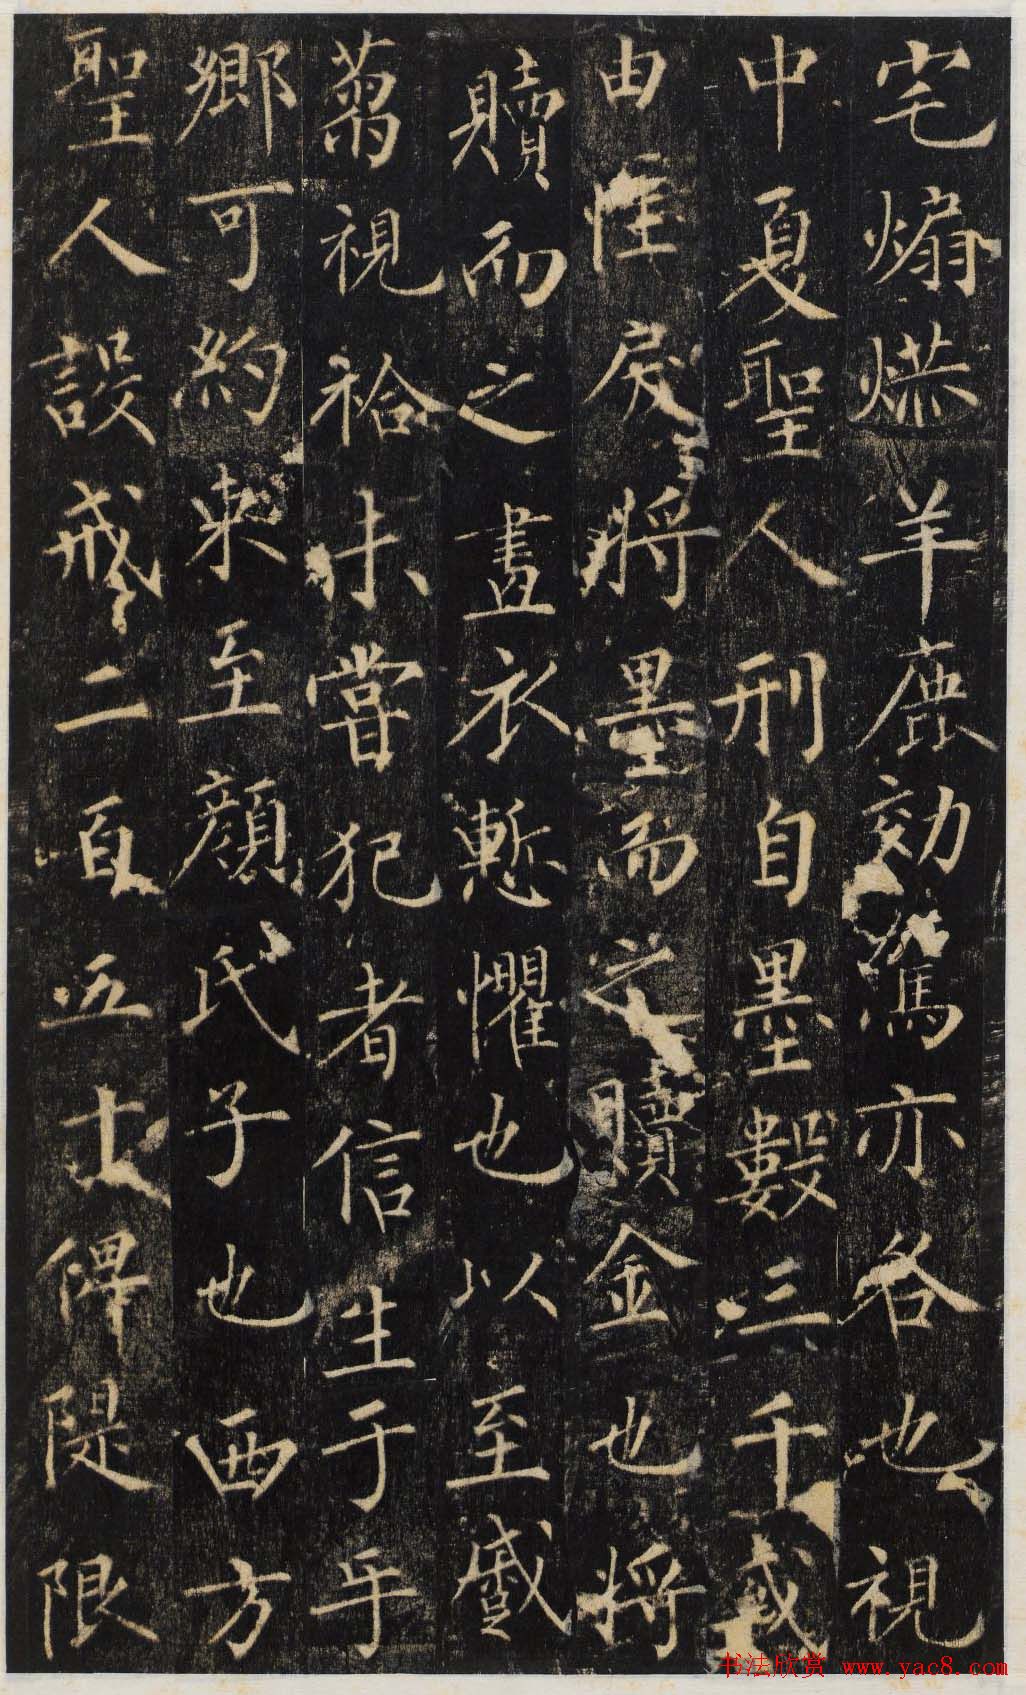 宅煽羊鹿効駕亦各也視
中夏聖人刑自墨數三千或
由性戾將墨而之贖金也將
贖而之畫衣慙懼也以至
蒭視袷未嘗犯者信生于乎
鄉可約束至顏氏子也西方
聖人設戒二百五十俾隄限
书法欣赏 www.yac8.com